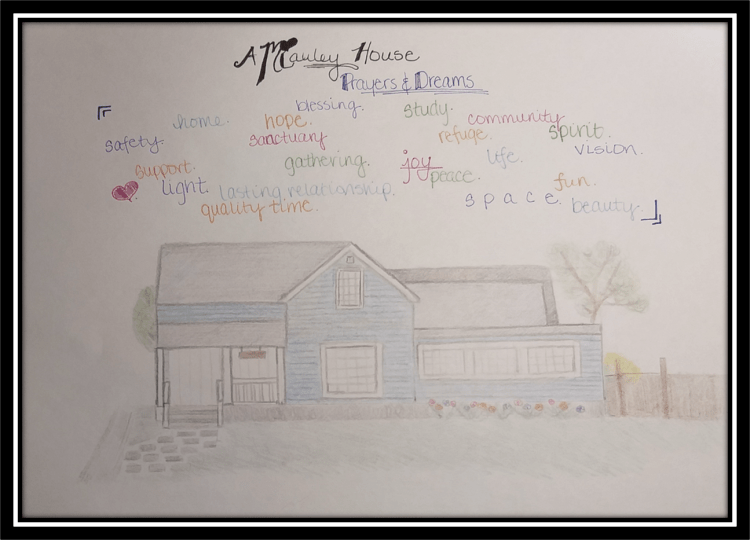 A McCauley House
Prayers & Dreams
blessing. study.
home. hope. community
safety. sanctuary refuge. spirit.
support. gathering. joy life. vision.
light. lasting relationship. peace. fun.
quality time. space. beauty.